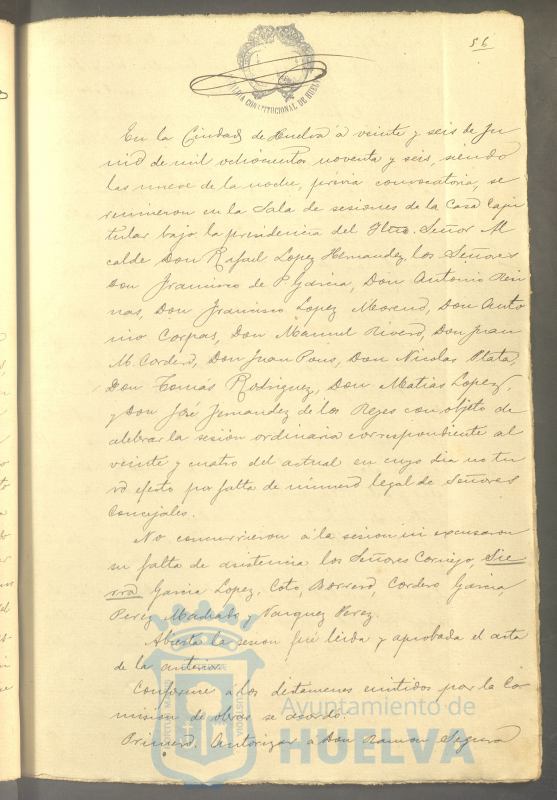 56
ALCALDIA CONSTITUCIONAL DE HUELVA
En la Ciudad de Huelva á veinte y seis de Ju
nio de mil ochocientos noventa y seis, siendo
las nueve de la noche, prévia convocatoria, se
reunieron en la Sala de sesiones de la Casa Capi
tular bajo la presidencia del Iltre. Señor Al
calde Don Rafael Lopez Hernandez, los Señores
Don Francisco de P. Garcia, Don Antonio Rei
nas, Don Francisco Lopez Moreno, Don Anto
nio Corpas, Don Manuel Rivero, Don Juan
M. Cordero, Don Juan Pons, Don Nicolas Plata,
Don Tomas Rodriguez, Don Matias Lopez,
y Don José Fernandez de los Reyes con objeto de
celebrar la sesión ordinaria correspondiente al
veinte y cuatro del actual en cuyo dia no tu
vo efecto por falta de número legal de Señores
Concejales.
No concurrieron á la sesion ni excusaron
su falta de asistencia los Señores Cornejo, Sie
rra, Garcia Lopez, Coto, Borrero, Cordero Garcia
Perez Machado y Vazquez Perez.
Abierta la sesion fué leida y aprobada el acta
de la anterior.
Conforme á los dictámenes emitidos por la Co
mision de obras se acordó:
Primero. Autorizar á Don Ramon Segura
Ayuntamiento de
HUELVA